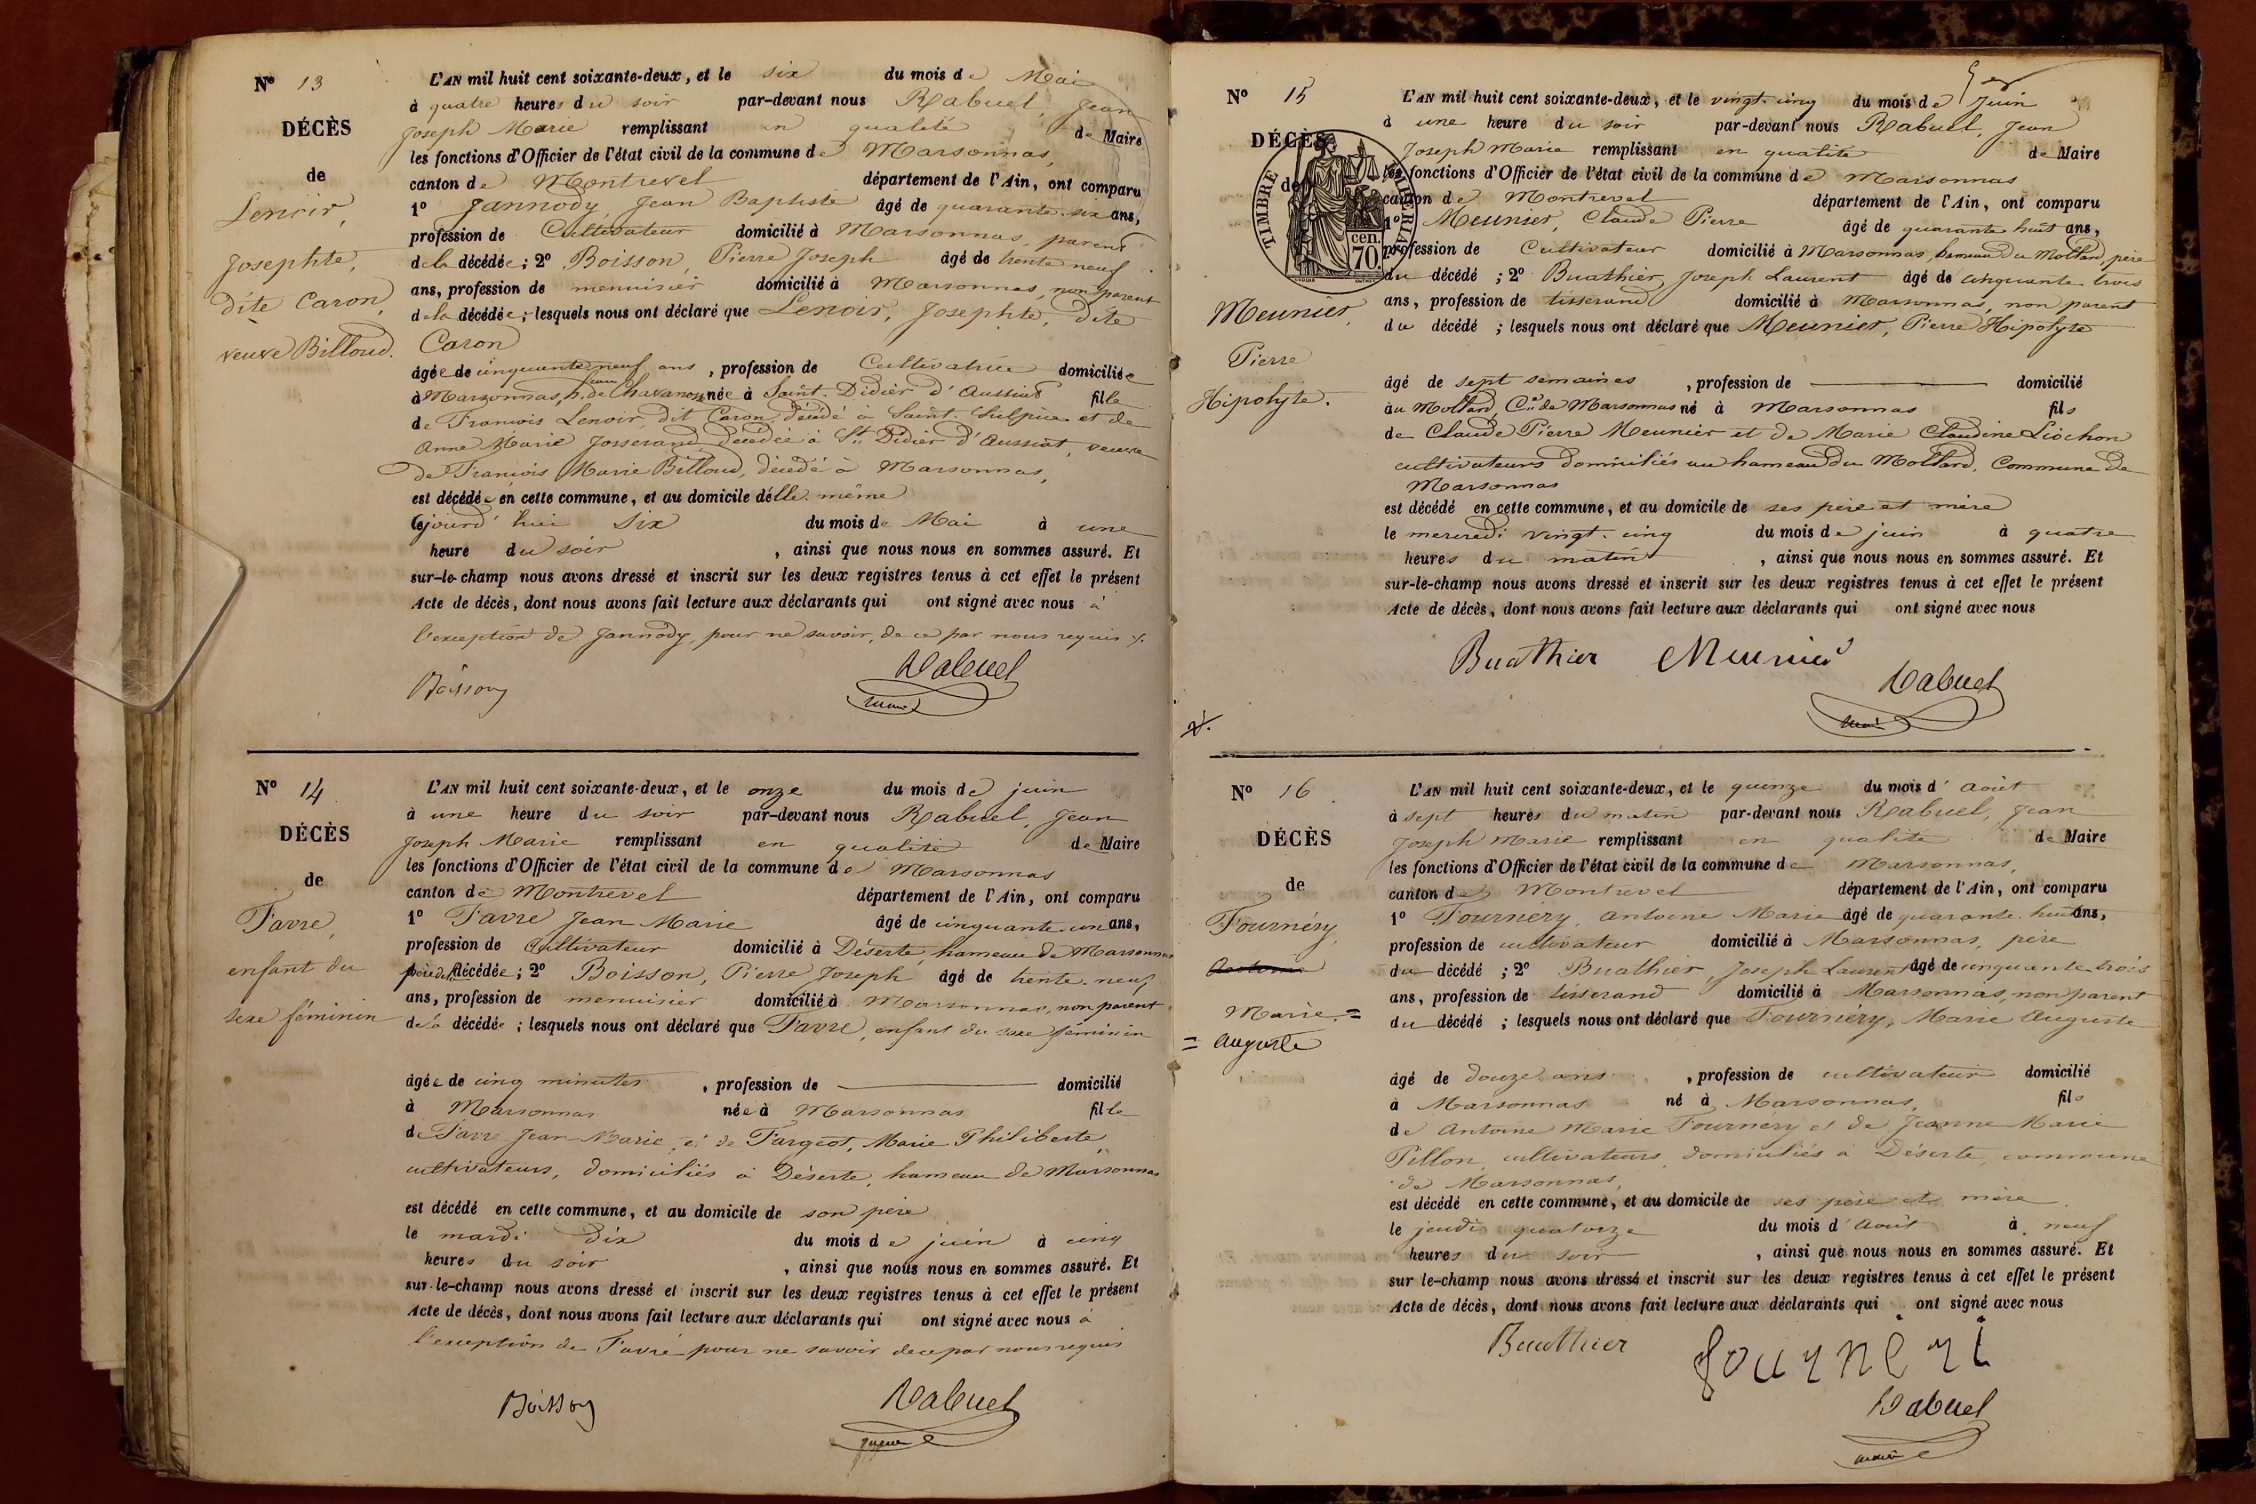 Nº 13
DÉCÈS
de
Lenoir,
Josephte,
dite Caron,
veuve Billoud.
L'AN mil huit cent soixante-deux, et le six du mois de Mai
à quatre heures du soir par-devant nous Rabuel, Jean
Joseph Marie remplissant en qualité de Maire
les fonctions d'Officier de l'état civil de la commune de Marsonnas,
canton de Montrevel département de l'Ain, ont comparu
1º Jannody, Jean Baptiste âgé de quarante-six ans,
profession de Cultivateur domicilié à Marsonnas, parent
de la décédée; 2º Boisson, Pierre Joseph âgé de trente neuf
ans, profession de menuisier domicilié à Marsonnas, non parent
de la décédée; lesquels nous ont déclaré que Lenoir, Josephte, dite
Caron
âgée de cinquante-neuf ans, profession de Cultivatrice domiciliée
à Marsonnas, née à Saint-Didier d'Aussiat fille
de François Lenoir, dit Caron, décédé à Saint-Sulpice et de
Anne Marie Josserand décédée à St Didier d'Aussiat, veuve
de François Marie Billoud, décédé à Marsonnas,
est décédée en cette commune, et au domicile d'elle-même
cejourd'hui six du mois de Mai à une
heure du soir, ainsi que nous nous en sommes assuré. Et
sur-le-champ nous avons dressé et inscrit sur les deux registres tenus à cet effet le présent
Acte de décès, dont nous avons fait lecture aux déclarants qui ont signé avec nous à
l'exception de Jannody, pour ne savoir, de ce par nous requis
Boisson
Rabuel
maire
Nº 14
DÉCÈS
de
Favre,
enfant du
sexe féminin
L'AN mil huit cent soixante-deux, et le onze du mois de juin
à une heure du soir par-devant nous Rabuel, Jean
Joseph Marie remplissant en qualité de Maire
les fonctions d'Officier de l'état civil de la commune de Marsonnas
canton de Montrevel département de l'Ain, ont comparu
1º Favre Jean Marie âgé de cinquante-un ans,
profession de Cultivateur domicilié à Déserte, hameau de Marsonnas
père de la décédée; 2º Boisson, Pierre Joseph âgé de trente-neuf
ans, profession de menuisier domicilié à Marsonnas, non parent
de la décédée; lesquels nous ont déclaré que Favre, enfant du sexe féminin
âgée de cinq minutes, profession de domicilié
à Marsonnas née à Marsonnas fille
de Favre Jean-Marie, et de Fargeot, Marie Philiberte,
cultivateurs, domiciliés à Déserte, hameau de Marsonnas
est décédé en cette commune, et au domicile de son père
le mardi dix du mois de juin à cinq
heures du soir, ainsi que nous nous en sommes assuré. Et
sur-le-champ nous avons dressé et inscrit sur les deux registres tenus à cet effet le présent
Acte de décès, dont nous avons fait lecture aux déclarants qui ont signé avec nous à
l'exception de Favre pour ne savoir de ce par nous requis
Boisson
Rabuel
Nº 15
DÉCÈS
de
TIMBRE IMPÉRIAL
70 cen.
Meunier,
Pierre
Hipolyte.
L'AN mil huit cent soixante-deux, et le vingt-cinq du mois de Juin
à une heure du soir par-devant nous Rabuel, Jean
Joseph Marie remplissant en qualité de Maire
les fonctions d'Officier de l'état civil de la commune de Marsonnas
canton de Montrevel département de l'Ain, ont comparu
1º Meunier, Claude Pierre âgé de quarante huit ans,
profession de Cultivateur domicilié à Marsonnas, hameau du Mollard, père
du décédé; 2º Buathier, Joseph Laurent âgé de cinquante-trois
ans, profession de tisserand domicilié à Marsonnas, non parent
du décédé; lesquels nous ont déclaré que Meunier, Pierre Hipolyte
âgé de sept semaines, profession de domicilié
au Mollard, Cne de Marsonnas né à Marsonnas fils
de Claude Pierre Meunier et de Marie Claudine Liochon
cultivateurs domiciliés au hameau du Mollard, Commune de
Marsonnas
est décédé en cette commune, et au domicile de ses père et mère
le mercredi vingt-cinq du mois de juin à quatre
heures du matin, ainsi que nous nous en sommes assuré. Et
sur-le-champ nous avons dressé et inscrit sur les deux registres tenus à cet effet le présent
Acte de décès, dont nous avons fait lecture aux déclarants qui ont signé avec nous
Buathier Meunier
Rabuel
Nº 16
DÉCÈS
de
Fournéry,
Marie =
= Auguste
L'AN mil huit cent soixante-deux, et le quinze du mois d'Août
à sept heures du matin par-devant nous Rabuel, Jean
Joseph Marie remplissant en qualité de Maire
les fonctions d'Officier de l'état civil de la commune de Marsonnas,
canton de Montrevel département de l'Ain, ont comparu
1º Fournéry, Antoine Marie âgé de quarante-huit ans,
profession de cultivateur domicilié à Marsonnas, père
du décédé; 2º Buathier, Joseph Laurent âgé de cinquante trois
ans, profession de tisserand domicilié à Marsonnas, non parent
du décédé; lesquels nous ont déclaré que Fournéry, Marie Auguste
âgé de douze ans, profession de cultivateur domicilié
à Marsonnas né à Marsonnas, fils
de Antoine Marie Fournéry et de Jeanne Marie
Pillon, cultivateurs, domiciliés à Déserte, commune
de Marsonnas,
est décédé en cette commune, et au domicile de ses père et mère
le jeudi quatorze du mois d'Août à neuf
heures du soir, ainsi que nous nous en sommes assuré. Et
sur-le-champ nous avons dressé et inscrit sur les deux registres tenus à cet effet le présent
Acte de décès, dont nous avons fait lecture aux déclarants qui ont signé avec nous
Buathier fournéri
Rabuel